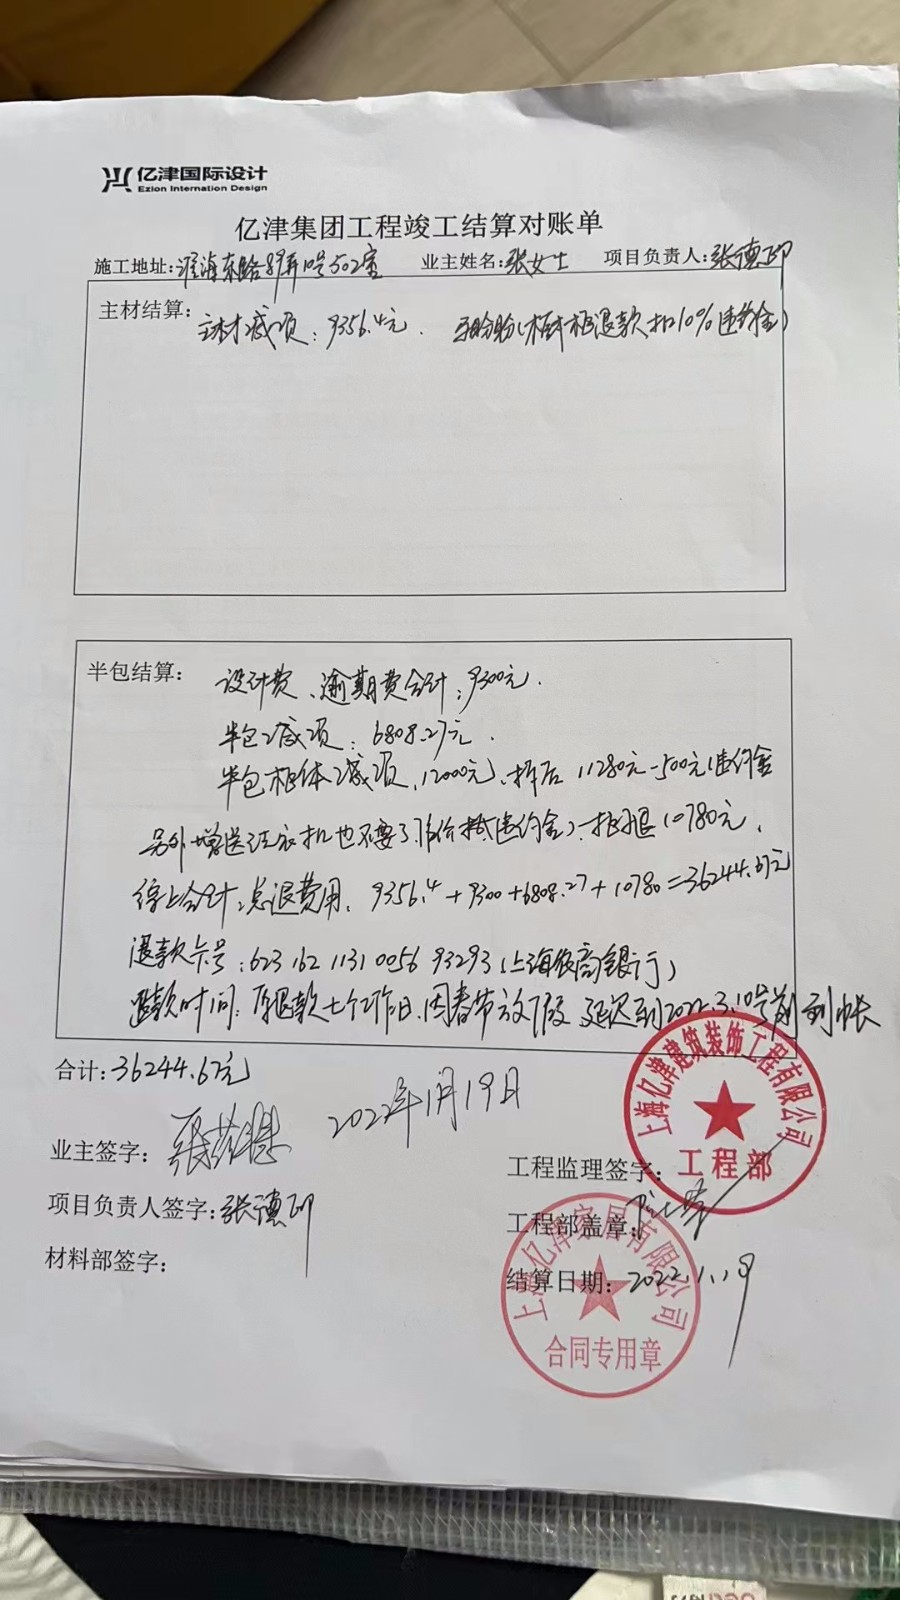 亿津国际设计
Ezion Internation Design
亿津集团工程竣工结算对账单
施工地址:淮海东路89弄10号502室 业主姓名:张女士 项目负责人:张德印
主材结算:
主材减项:9356.4元. 柜退款扣10%(违约金)
半包结算:
设计费、逾期费合计:9300元.
半包减项:6808.27元.
半包柜体减项,12000元,折后11280元-500元(违约金
另外增送洗衣机也不要了 违约金)-共退10780元,
综上合计:总退费用,9356.4+9300+6808.27+10780=36244.67元
退款卡号:623 162 1131 0056 93293(上海农商银行)
退款时间:原退款七个工作日,因春节放假 延迟到2022.3.10号前到帐
合计:36244.67元
2022年1月19日
业主签字:
工程监理签字:
项目负责人签字:张德印
工程部盖章:
材料部签字:
结算日期:2022.1.19
上海亿津建筑装饰工程有限公司
工程部
上海亿津家居有限公司
合同专用章